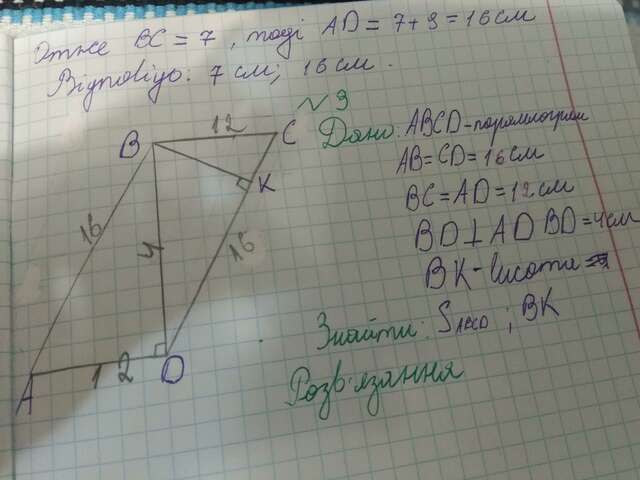 Отже BC = 7, тоді AD = 7+9 = 16 см
Відповідь: 7 см; 16 см.
№ 9
Дано: ABCD - паралелограм
AB = CD = 16 см
BC = AD = 12 см
BD ⊥ AD BD = 4 см
BK - висота
Знайти: S ABCD ; BK
Розв'язання
B 12 C
K
16 4 16
A 12 D